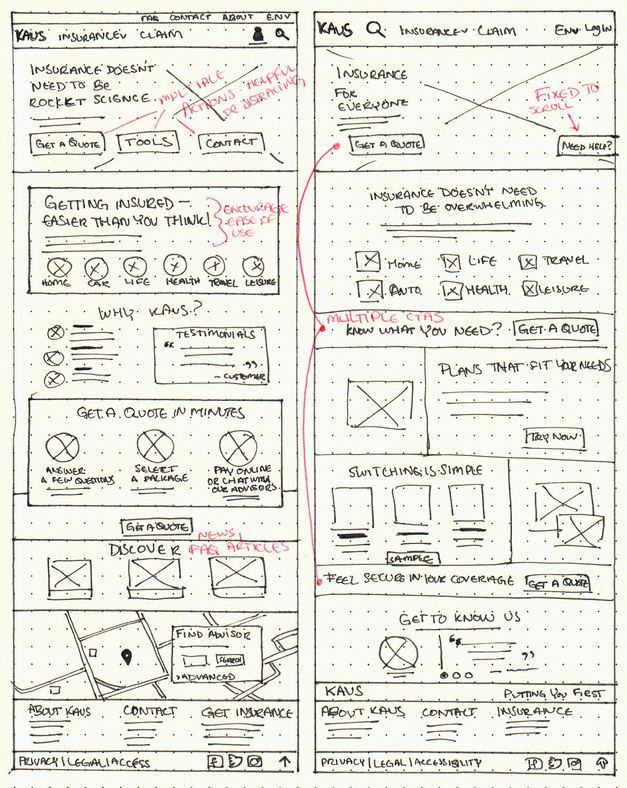 FAQ CONTACT ABOUT EN∨
KAUS INSURANCE∨ CLAIM
INSURANCE DOESN'T
NEED TO BE
ROCKET SCIENCE.
MULTIPLE
ACTIONS: HELPFUL
OR DISTRACTING
GET A QUOTE
TOOLS
CONTACT
GETTING INSURED —
EASIER THAN YOU THINK!
ENCOURAGE
EASE OF
USE
HOME CAR LIFE HEALTH TRAVEL LEISURE
WHY KAUS?
TESTIMONIALS
"
"
- CUSTOMER
GET A QUOTE IN MINUTES
ANSWER
A FEW QUESTIONS
SELECT
A PACKAGE
PAY ONLINE
OR CHAT WITH
OUR ADVISORS
GET A QUOTE
NEWS/
DISCOVER FAQ ARTICLES
FIND ADVISOR
SEARCH
>ADVANCED
ABOUT KAUS CONTACT GET INSURANCE
PRIVACY | LEGAL | ACCESS
KAUS INSURANCE∨ CLAIM EN∨ LOGIN
INSURANCE
FOR
EVERYONE
FIXED TO
SCROLL
GET A QUOTE
NEED HELP?
INSURANCE DOESN'T NEED
TO BE OVERWHELMING
HOME LIFE TRAVEL
AUTO HEALTH LEISURE
MULTIPLE CTAS
KNOW WHAT YOU NEED? GET A QUOTE
PLANS THAT FIT YOUR NEEDS
TRY NOW
SWITCHING IS SIMPLE
SAMPLE
FEEL SECURE IN YOUR COVERAGE GET A QUOTE
GET TO KNOW US
"
"
KAUS PUTTING YOU FIRST
ABOUT KAUS CONTACT INSURANCE
PRIVACY | LEGAL | ACCESSIBILITY